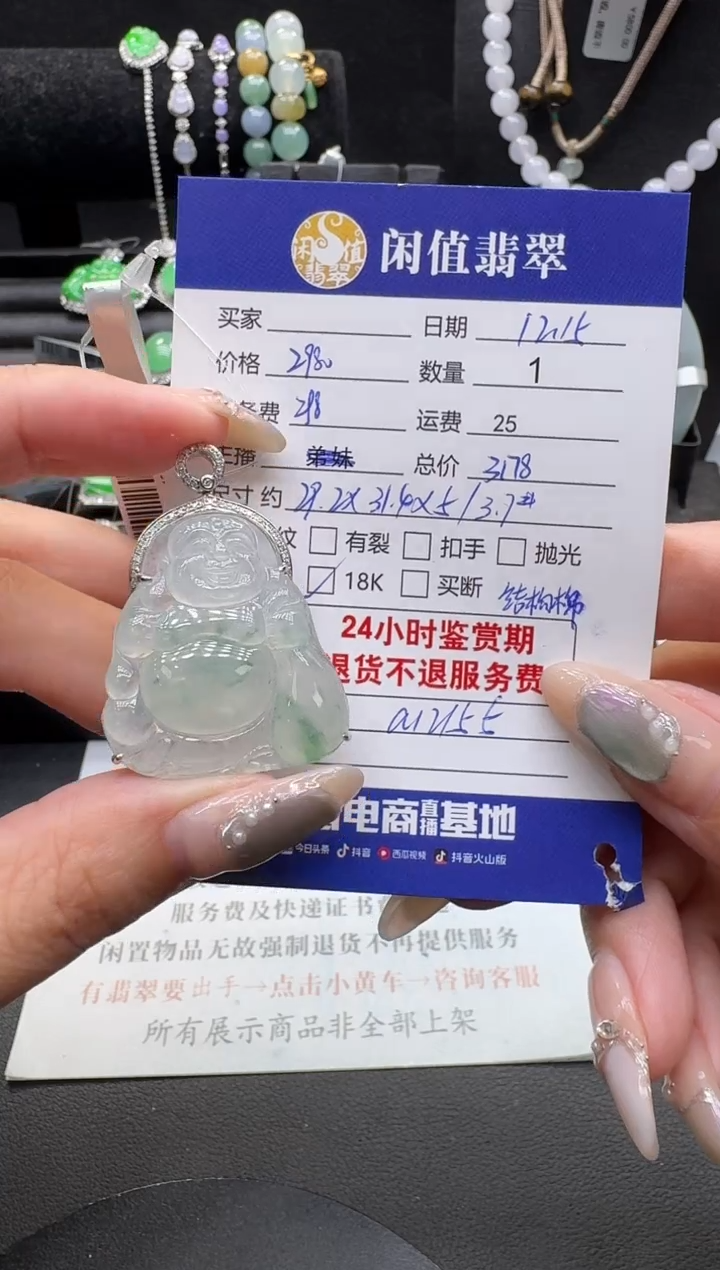 闲值
翡翠
闲值翡翠
买家 日期 12.15
价格 2980 数量 1
费 298 运费 25
主播 弟妹 总价 3178
尺寸 约 29.2X31.4X5/3.7
纹 有裂 扣手 抛光
18K 买断 结构棉
24小时鉴赏期
退货不退服务费
a12155
电商直播基地
今日头条 抖音 西瓜视频 抖音火山版
服务费及快递证书
闲置物品无故强制退货不再提供服务
有翡翠要出手→点击小黄车→咨询客服
所有展示商品非全部上架